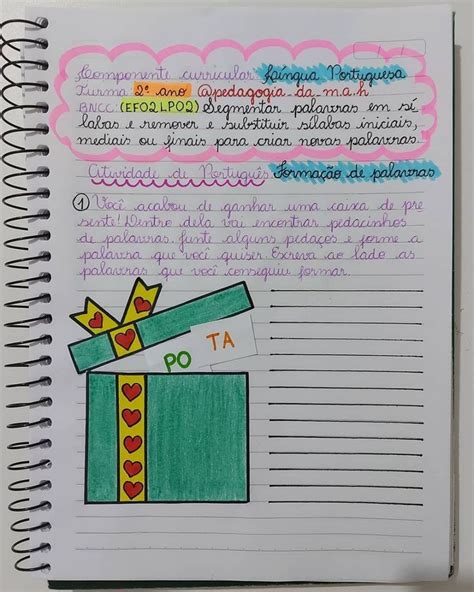 Componente curricular Língua Portuguesa
Turma 2º ano @pedagogia_da_m.a.h
BNCC: (EF02LP02) Segmentar palavras em sí
labas e remover e substituir sílabas iniciais,
mediais ou finais para criar novas palavras.
Atividade de Português Formação de palavras
① Você acabou de ganhar uma caixa de pre
sente! Dentro dela vai encontrar pedacinhos
de palavras. Junte alguns pedaços e forme a
palavra que você quiser. Escreva ao lado as
palavras que você conseguiu formar.
TA
PO